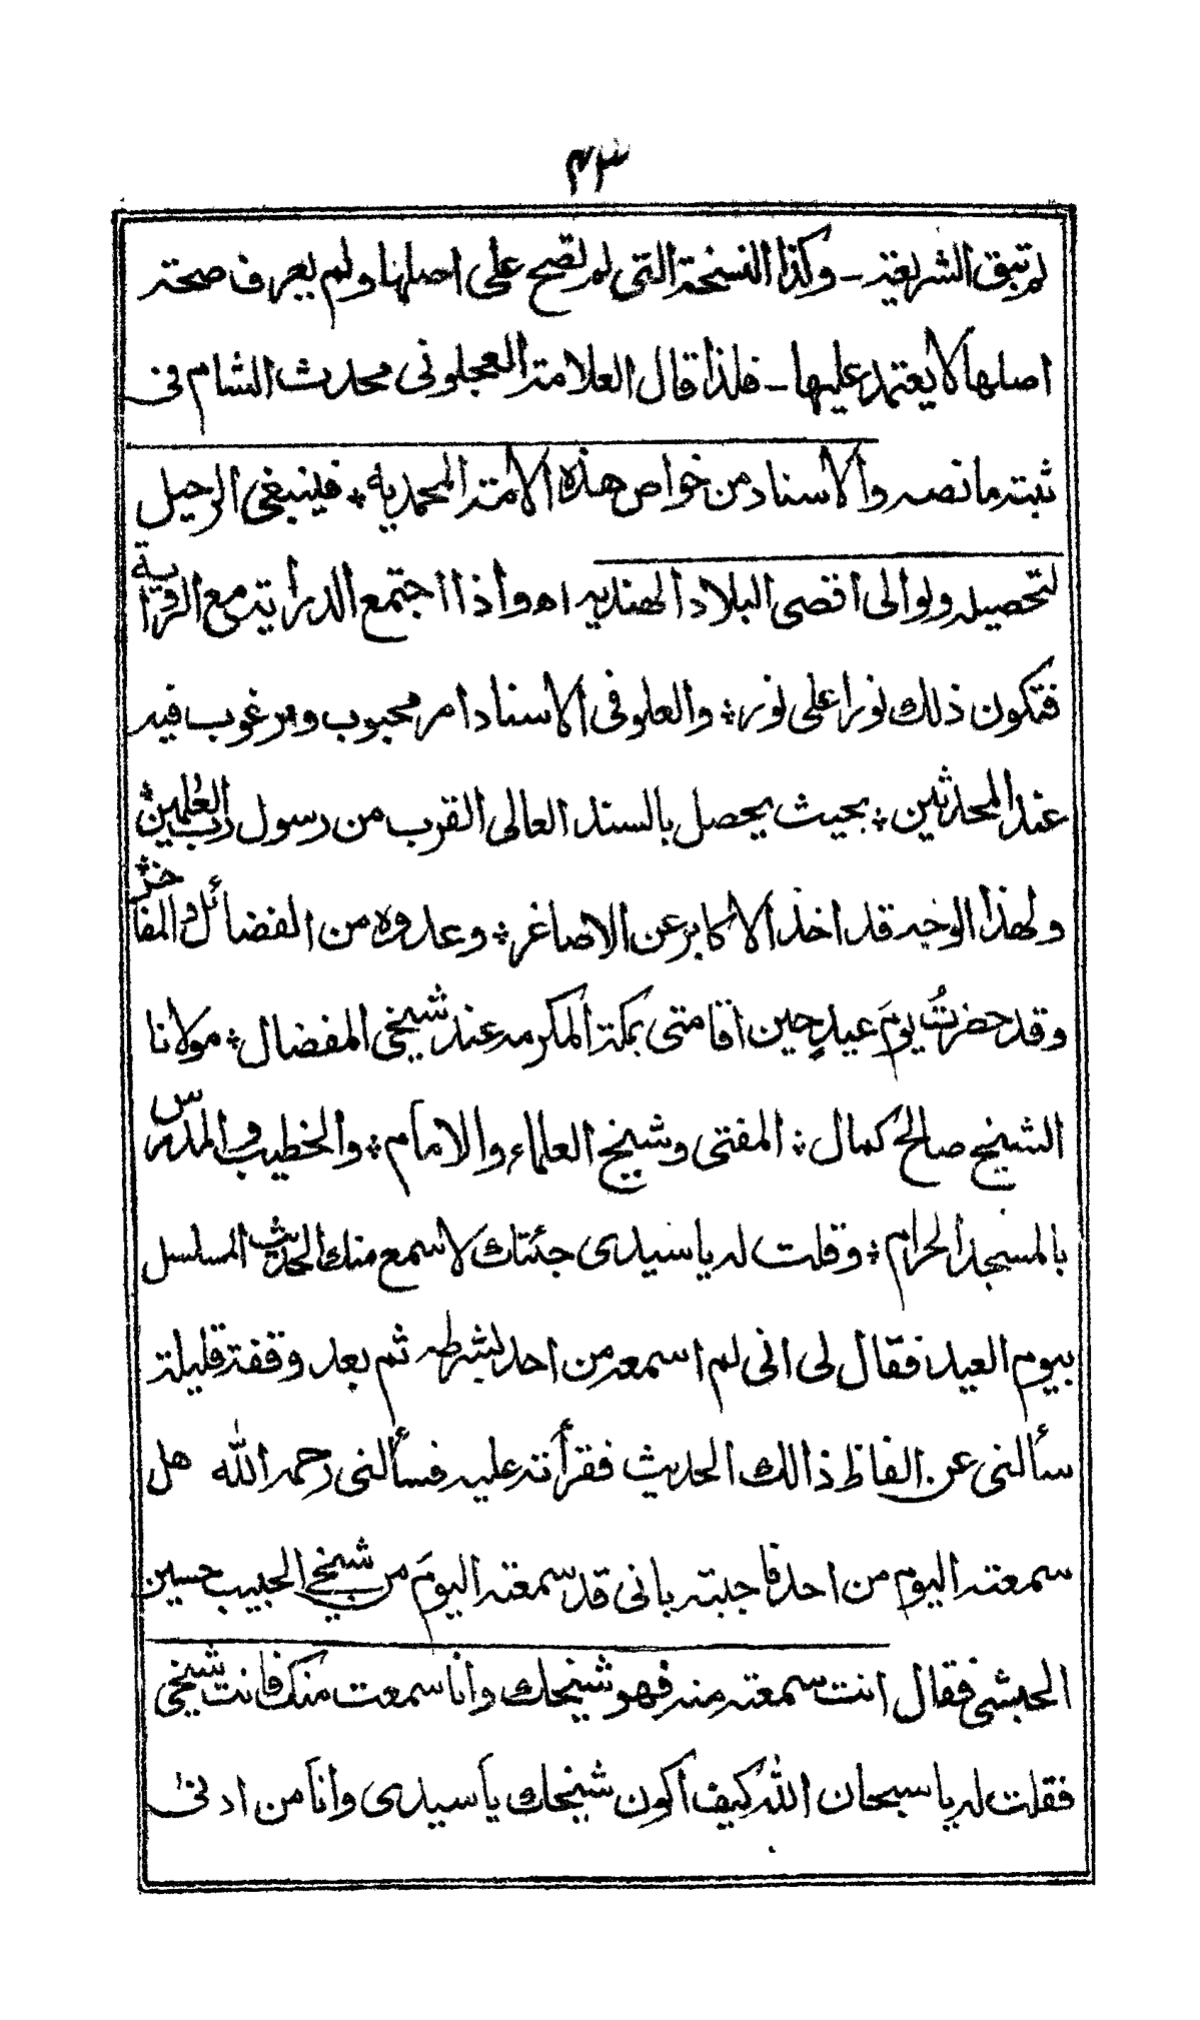 ٤٣
لم تبق الشريعة ـ وكذا النسخة التى لم تصح على اصلها ولم يعرف صحة
اصلها لا يعتمد عليها ـ فلذا قال العلامة العجلونى محدث الشام فى
ثبته ما نصه والاسناد من خواص هذه الامة المحمديه ؞ فينبغى الرحيل
لتحصيله ولو الى اقصى البلاد الهنديه اه‍ واذا اجتمع الدراية مع الرواية
فتكون ذلك نورا على نور ؞ والعلو فى الاسناد امر محبوب ومرغوب فيه
عند المحدثين ؞ بحيث يحصل بالسند العالى القرب من رسول رب العٰلمين ؞
ولهذا الوجه قد اخذ الاكابر عن الاصاغر ؞ وعدوه من الفضائل والمفاخر ؞
وقد حضرتُ يومَ عيدٍ حين اقامتى بمكة المكرمه عند شيخى المفضال ؞ مولانا
الشيخ صالح كمال ؞ المفتى وشيخ العلماء والامام ؞ والخطيب والمدرس
بالمسجد الحرام ؞ وقلت له يا سيدى جئتك لاسمع منك الحديث المسلسل
بيوم العيد فقال لى انى لم اسمعه من احد بشرطه ثم بعد وقفة قليلة
سألنى عن الفاظ ذالك الحديث فقرأته عليه فسألنى رحمه الله هل
سمعته اليوم من احد فاجبته بانى قد سمعته اليومَ من شيخى الحبيب حسين
الحبشى فقال انت سمعته منه فهو شيخك وانا سمعت منك فانت شيخى
فقلت له يا سبحان الله كيف أكون شيخك يا سيدى وانا من ادنىٰ